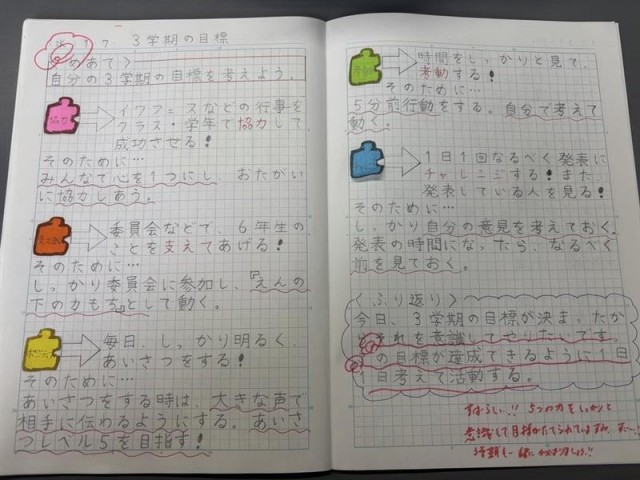 1 7. 3学期の目標
〈めあて〉
自分の3学期の目標を考えよう。
協力
などの行事を
クラス・学年で協力して
成功させる!
そのために…
みんなで心を1つにし、おたがい
に協力しあう。
委員会などで、6年生の
ことを支えてあげる!
そのために…
しっかり委員会に参加し、『えんの
下の力もち』として動く。
毎日、しっかり明るく、
あいさつをする!
そのために…
あいさつをする時は、大きな声で
相手に伝わるようにする。あいさ
つレベル5を目指す!
時間をしっかりと見て、
考動する!
そのために…
5分前行動をする。自分で考えて
動く。
1日1回なるべく発表に
チャレンジする!また、
発表している人を見る!
そのために…
しっかり自分の意見を考えておく。
発表の時間になったら、なるべく
前を見ておく。
〈ふり返り〉
今日、3学期の目標が決まったか
らそれを意識してやりたいです。
の目標が達成できるように1日
1日考えて活動する。
すばらしい!! 5つの力をしっかりと
意識して目標がたてられていますね。